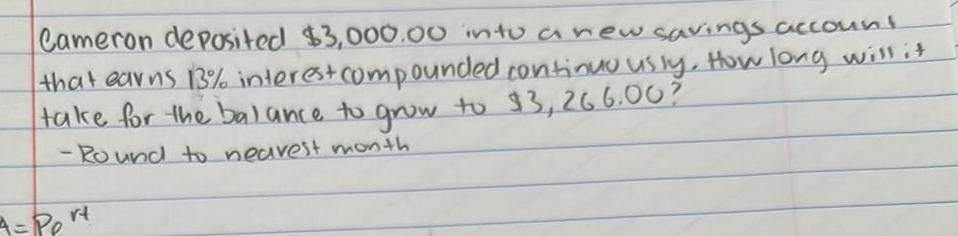 Cameron deposited $3,000.00 into a new savings account
that earns 13% interest compounded continuously. How long will it
take for the balance to grow to $3,266.00?
- Round to nearest month
A = Pe^rt